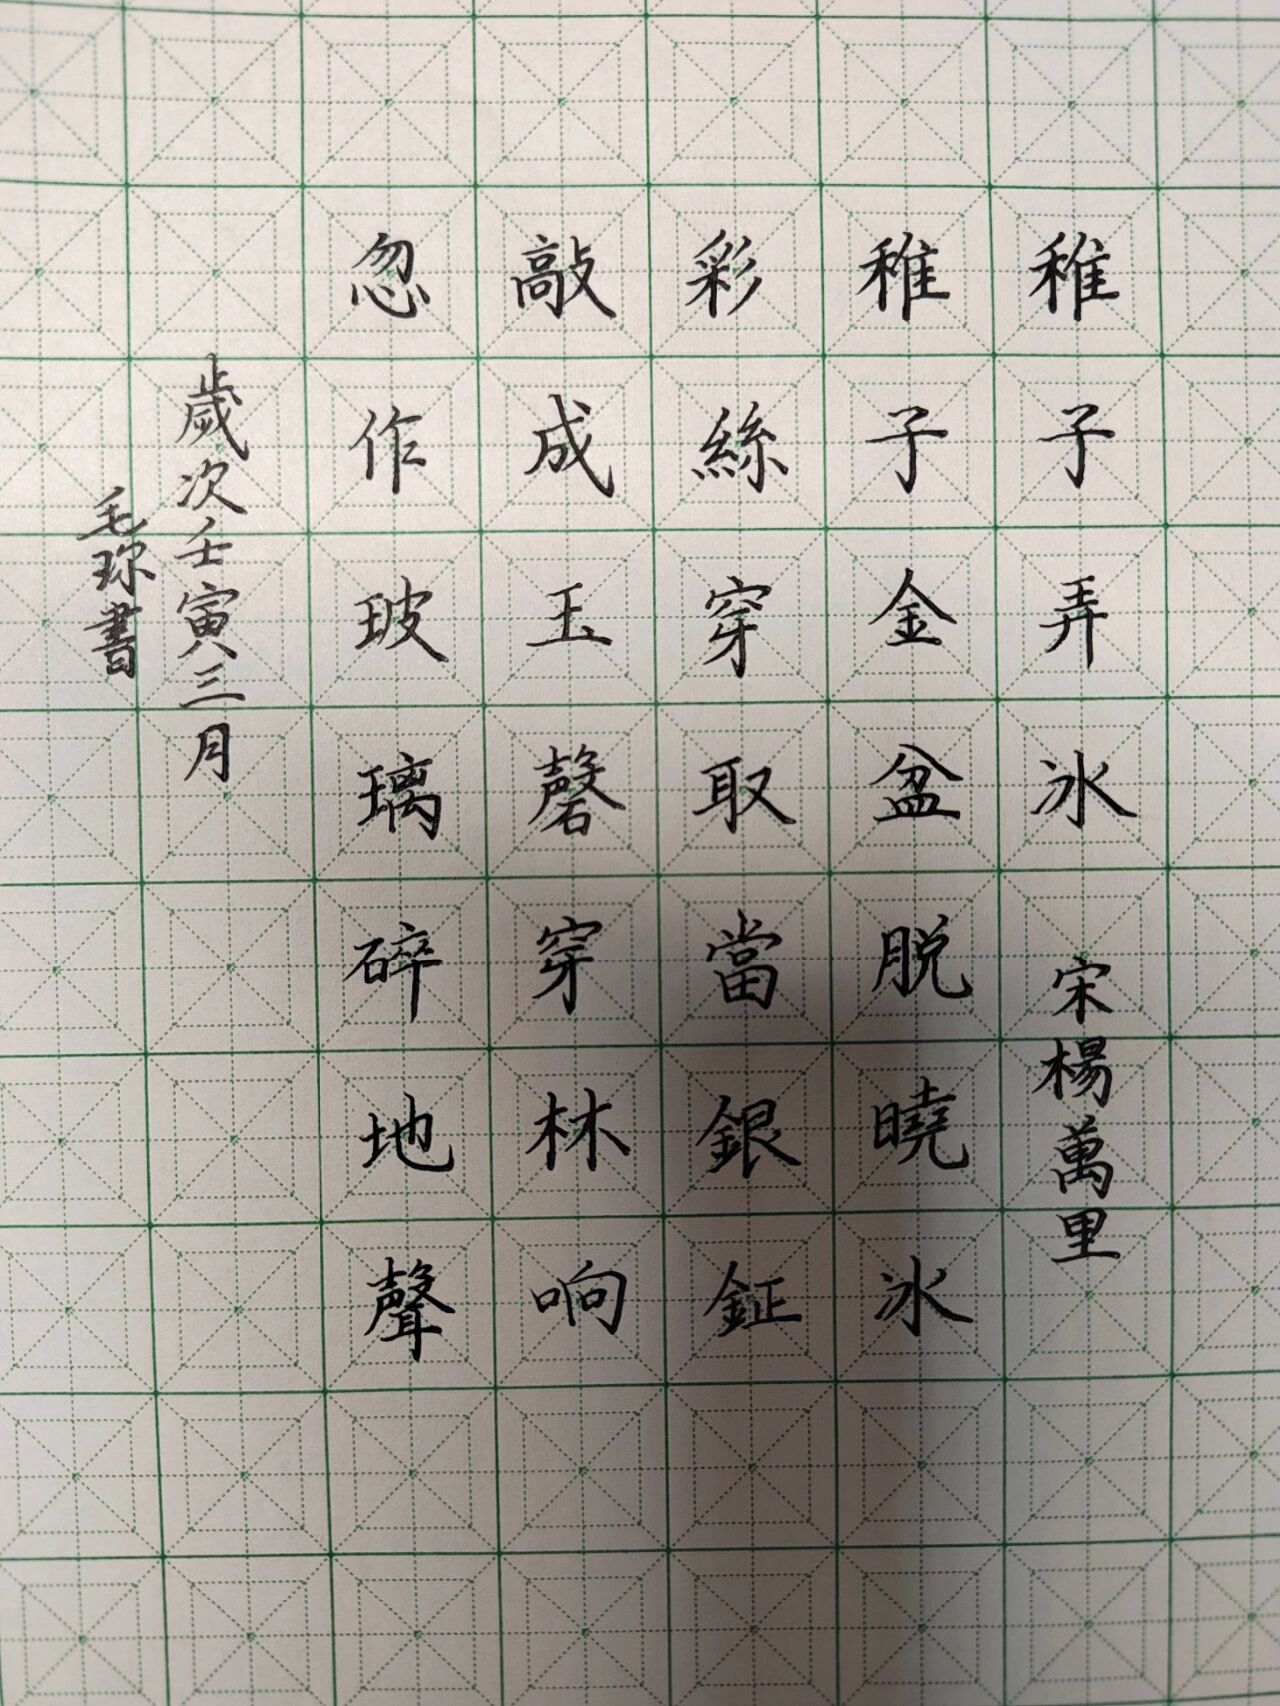 稚子弄冰 宋楊萬里
稚子金盆脱曉冰
彩絲穿取當銀鉦
敲成玉磬穿林响
忽作玻璃碎地聲
歲次壬寅三月
毛珎書